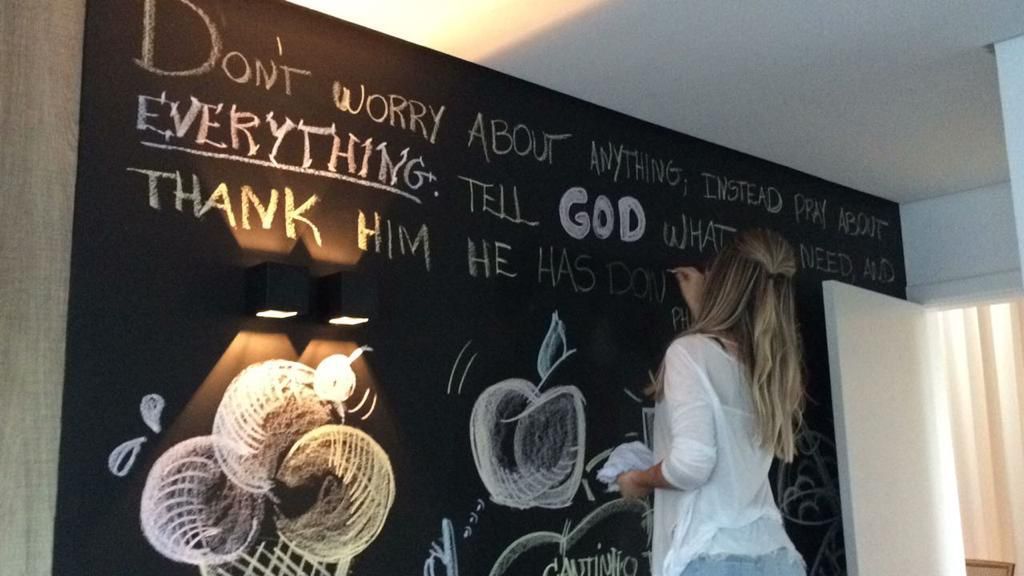 DON'T WORRY ABOUT ANYTHING; INSTEAD PRAY ABOUT
EVERYTHING. TELL GOD WHAT NEED, AND
THANK HIM HE HAS DON
PH
CANTINHO